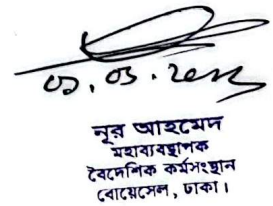 নূর আহমেদ
মহাব্যবস্থাপক
বৈদেশিক কর্মসংস্থান
বোয়েসেল, ঢাকা।